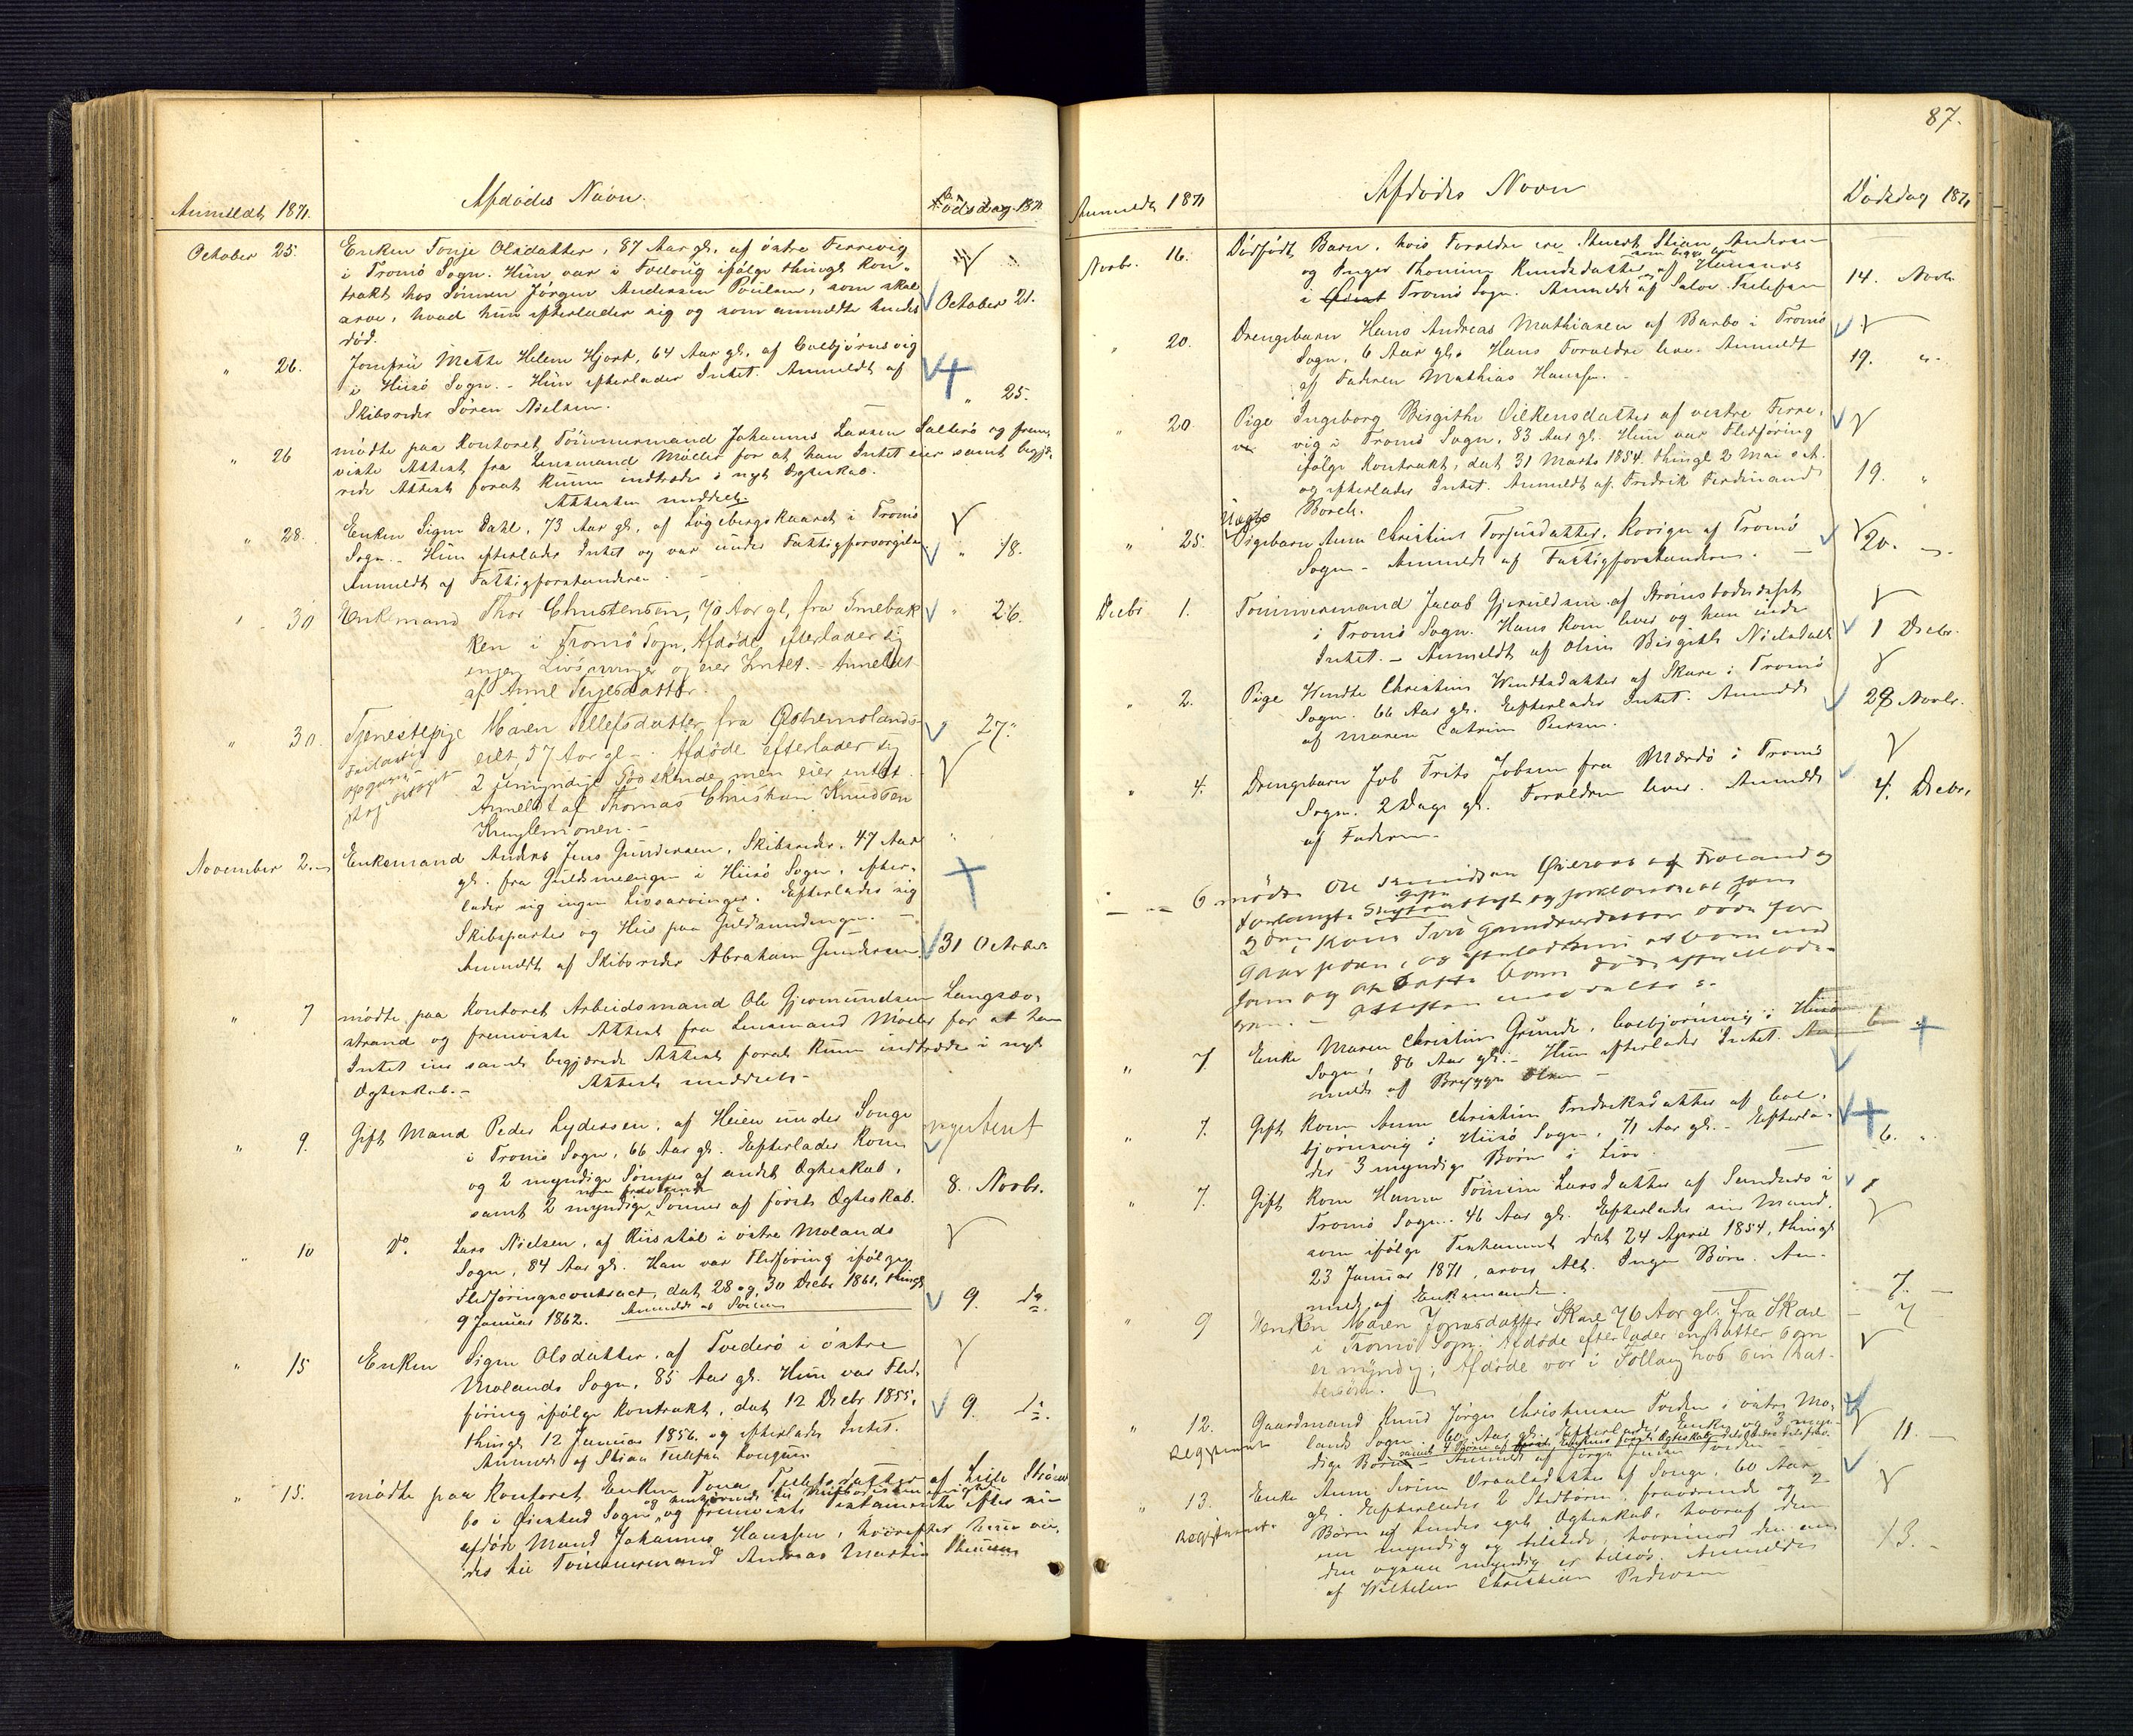 Anmeldt 1871.
Afdödes Navn.
Dödsdag 1871
October 25.
Enken Tonje Olsdatter, 87 Aar gl. af östre Ferrevig
i Tromö Sogn. Hun var i Follaug ifölge thingl. Kon-
trakt hos Sönnen Jörgen Andersen Poulsen, som skal
arve, hvad hun efterlader sig og som anmeldte hendes
död.
October 21.
" 26.
Jomfrü Mette Helene Hjort, 64 Aar gl. af Colbjörnsvig
i Hisö Sogn. - Hun efterlader Intet. Anmeldt af
Skibsreder Sören Nielsen.
" 25.
" 26
mödte paa Kontoret Tömmermand Johannes Larsen Salterö og frem-
viste Attest fra Lensmand Möller for at han Intet eier samt begjæ-
rede Attest forat kunne indtræde i nyt Ægteskab.
Attesten meddelt.
" 28.
Enken Signe Dahl, 73 Aar gl. af Lögebergskaaret i Tromö
Sogn. - Hun efterlader Intet og var under Fattigforsorgelse
Anmeldt af Fattigforstanderen.
" 18.
" 30
Enkemand Thor Christensen, 70 Aar gl, fra Smebak
ken i Tromö Sogn, Afdöde efterlader sig
ingen Livsarvinger og eier Intet. - Anmeldt
af Anne Terjesdatter.
" 26.
" 30.
Tjenestepige Maren Tellefsdatter fra Østremolands-
eiet, 57 Aar gl - . Afdöde efterlader sig
2 umyndige Södskende, men eier intet.
Anmeldt af Thomas Christian Knudsen
Kruglemonen. -
27.
November 2.
Enkemand Anders Jens Gundersen, Skibsreder, 47 Aar
gl. fra Guldsmedengen i Hisö Sogn, efter-
lader sig ingen Livsarvinger. Efterlader sig
Skibsparter og Hus paa Guldsmedengen. -
Anmeldt af Skibsreder Abraham Gundersen.
31 October
" 7
mödte paa Kontoret Arbeidsmand Ole Gjermundsen Langsæv-
strand og fremviste Attest fra Lensmand Möller for at han
Intet eier samt begjærede Attest forat kunne indtræde i nyt
Ægteskab. - Attest meddelt -
" 9.
Gift Mand Peder Lydersen, af Heien under Songe
i Tromö Sogn, 66 Aar gl. Efterlader Kone
og 2 myndige Sönner af andet Ægteskab,
samt 2 myndige Sönner af först Ægteskab.
8. Novbr.
" 10
Do. Lars Nielsen, af Riisstöl i östre Molands
Sogn, 84 Aar gl. Han var Fledföring ifölge
Fledföringscontract, dat 28 og 30 Decbr 1861, thingl.
9 Januar 1862. Anmeldt af Sönnen
9. do.
" 15
Enken Signe Olsdatter, af Tvederö i östre
Molands Sogn, 85 Aar gl. Hun var Fled-
föring ifölge Kontrakt, dat 12 Decbr 1855,
thingl 12 Januar 1856. og efterlader Intet.
Anmeldt af Stian Tellefsen Longum
9. do.
" 15.
mödte paa Kontoret Enken Tona Tellefsdatter af Lille Ströms
bo i Øiestad Sogn og fremviste Testamente efter sin
afdöde Mand Johannes Hanssen, hvorefter hun
des til Tömmermand Andreas Martin

87.
Anmeldt 1871
Afdödes Navn
Dödsdag 1871
Novbr. 16.
Dödfödt Barn, hvis Forældre ere Stuert Stian Andersen
og Inger Thomine Knudsdatter, af Hansnes
i Tromö Sogn. Anmeldt af Salve Tellefsen
14. Novbr.
" 20.
Drengebarn Hans Andreas Mathiasen af Barbo i Tromö
Sogn, 6 Aar gl. Hans Forældre leve. Anmeldt
af Faderen Mathias Hansen.
19. "
" 20.
Pige Ingeborg Birgithe Vilkensdatter af vestre Ferre-
vig i Tromö Sogn, 83 Aar gl. Hun var Fledföring
ifölge Kontrakt, dat 31 Marts 1854. thingl 2 Mai s. A.
og efterlader Intet. Anmeldt af Fredrik Ferdinand
Borch.
19. "
" 25.
Uægte Pigebarn Anna Christine Torjusdatter, Kovigen af Tromö
Sogn - Anmeldt af Fattigforstanderen. -
20. -
Decbr 1.
Tömmermand Jacob Gjeruldsen af Strömsbodödeskift
i Tromö Sogn. Hans Kone lever og han eiede
Intet. - Anmeldt af Oline Birgithe Nielsdatt
1 Decbr.
" 2.
Pige Wendte Christine Wendtsdatter af Skare i Tromö
Sogn. 66 Aar gl. Efterlader Intet. Anmeldt
af Maren Catrine Persen.
28 Novbr.
" 4.
Drengebarn Job Frits Jobsen fra Mærdö i Tromö
Sogn. 2 Dage gl. Forældrene lever. Anmeldt
af Faderen.
4. Decbr.
6
mödte Ole af Froland og
forlangte Skifteattest og forklarede at hans
Kone Siri Gundersdatter döde for
" 7.
Enke Maren Christine Grunde, Colbjörnsvig i Hisö
Sogn, 86 Aar gl. - Hun efterlader Intet. An-
meldt af Brygger Olsen -
6
" 7.
Gift Kone Anne Christine Fredriksdatter af Col-
björnsvig i Hisö Sogn, 71 Aar gl. - Efterla-
der 3 myndige Börn i Live.
6. "
" 7.
Gift Kone Hanna Tomine Larsdatter af Sandnes i
Tromö Sogn. 46 Aar gl. Efterlader sin Mand,
som ifölge Testament dat 24 April 1854, thingl
23 Januar 1871, arver Alt. Ingen Börn. An-
meldt af Enkemanden.
7. -
" 9
Henken Maren Jonasdatter Skare 76 Aar gl. fra Skare
i Tromö Sogn; Afdöde efterlader en Datter som
er myndig; Afdöde var i Follaug hos sin Dat-
tersön.
7
" 12.
Gaardmand Knud Jörgen Christensen Tveden i östre Mo-
lands Sogn. 60 Aar gl. Efterlader Enken og 3 myn-
dige Börn - Anmeldt af Jörgen Tveden -
11. -
" 13.
Enke Anne Serine Oroulsdatter af Songe, 60 Aar
gl. Efterlader 2 Stedbörn, fraværende og 2
Börn af hendes eget Ægteskab, hvoraf den
ene myndig og tilstede, hvorimod den an
den ogsaa myndig er tilsös. Anmeldt
af Wilhelm Christian Pedersen
13. -